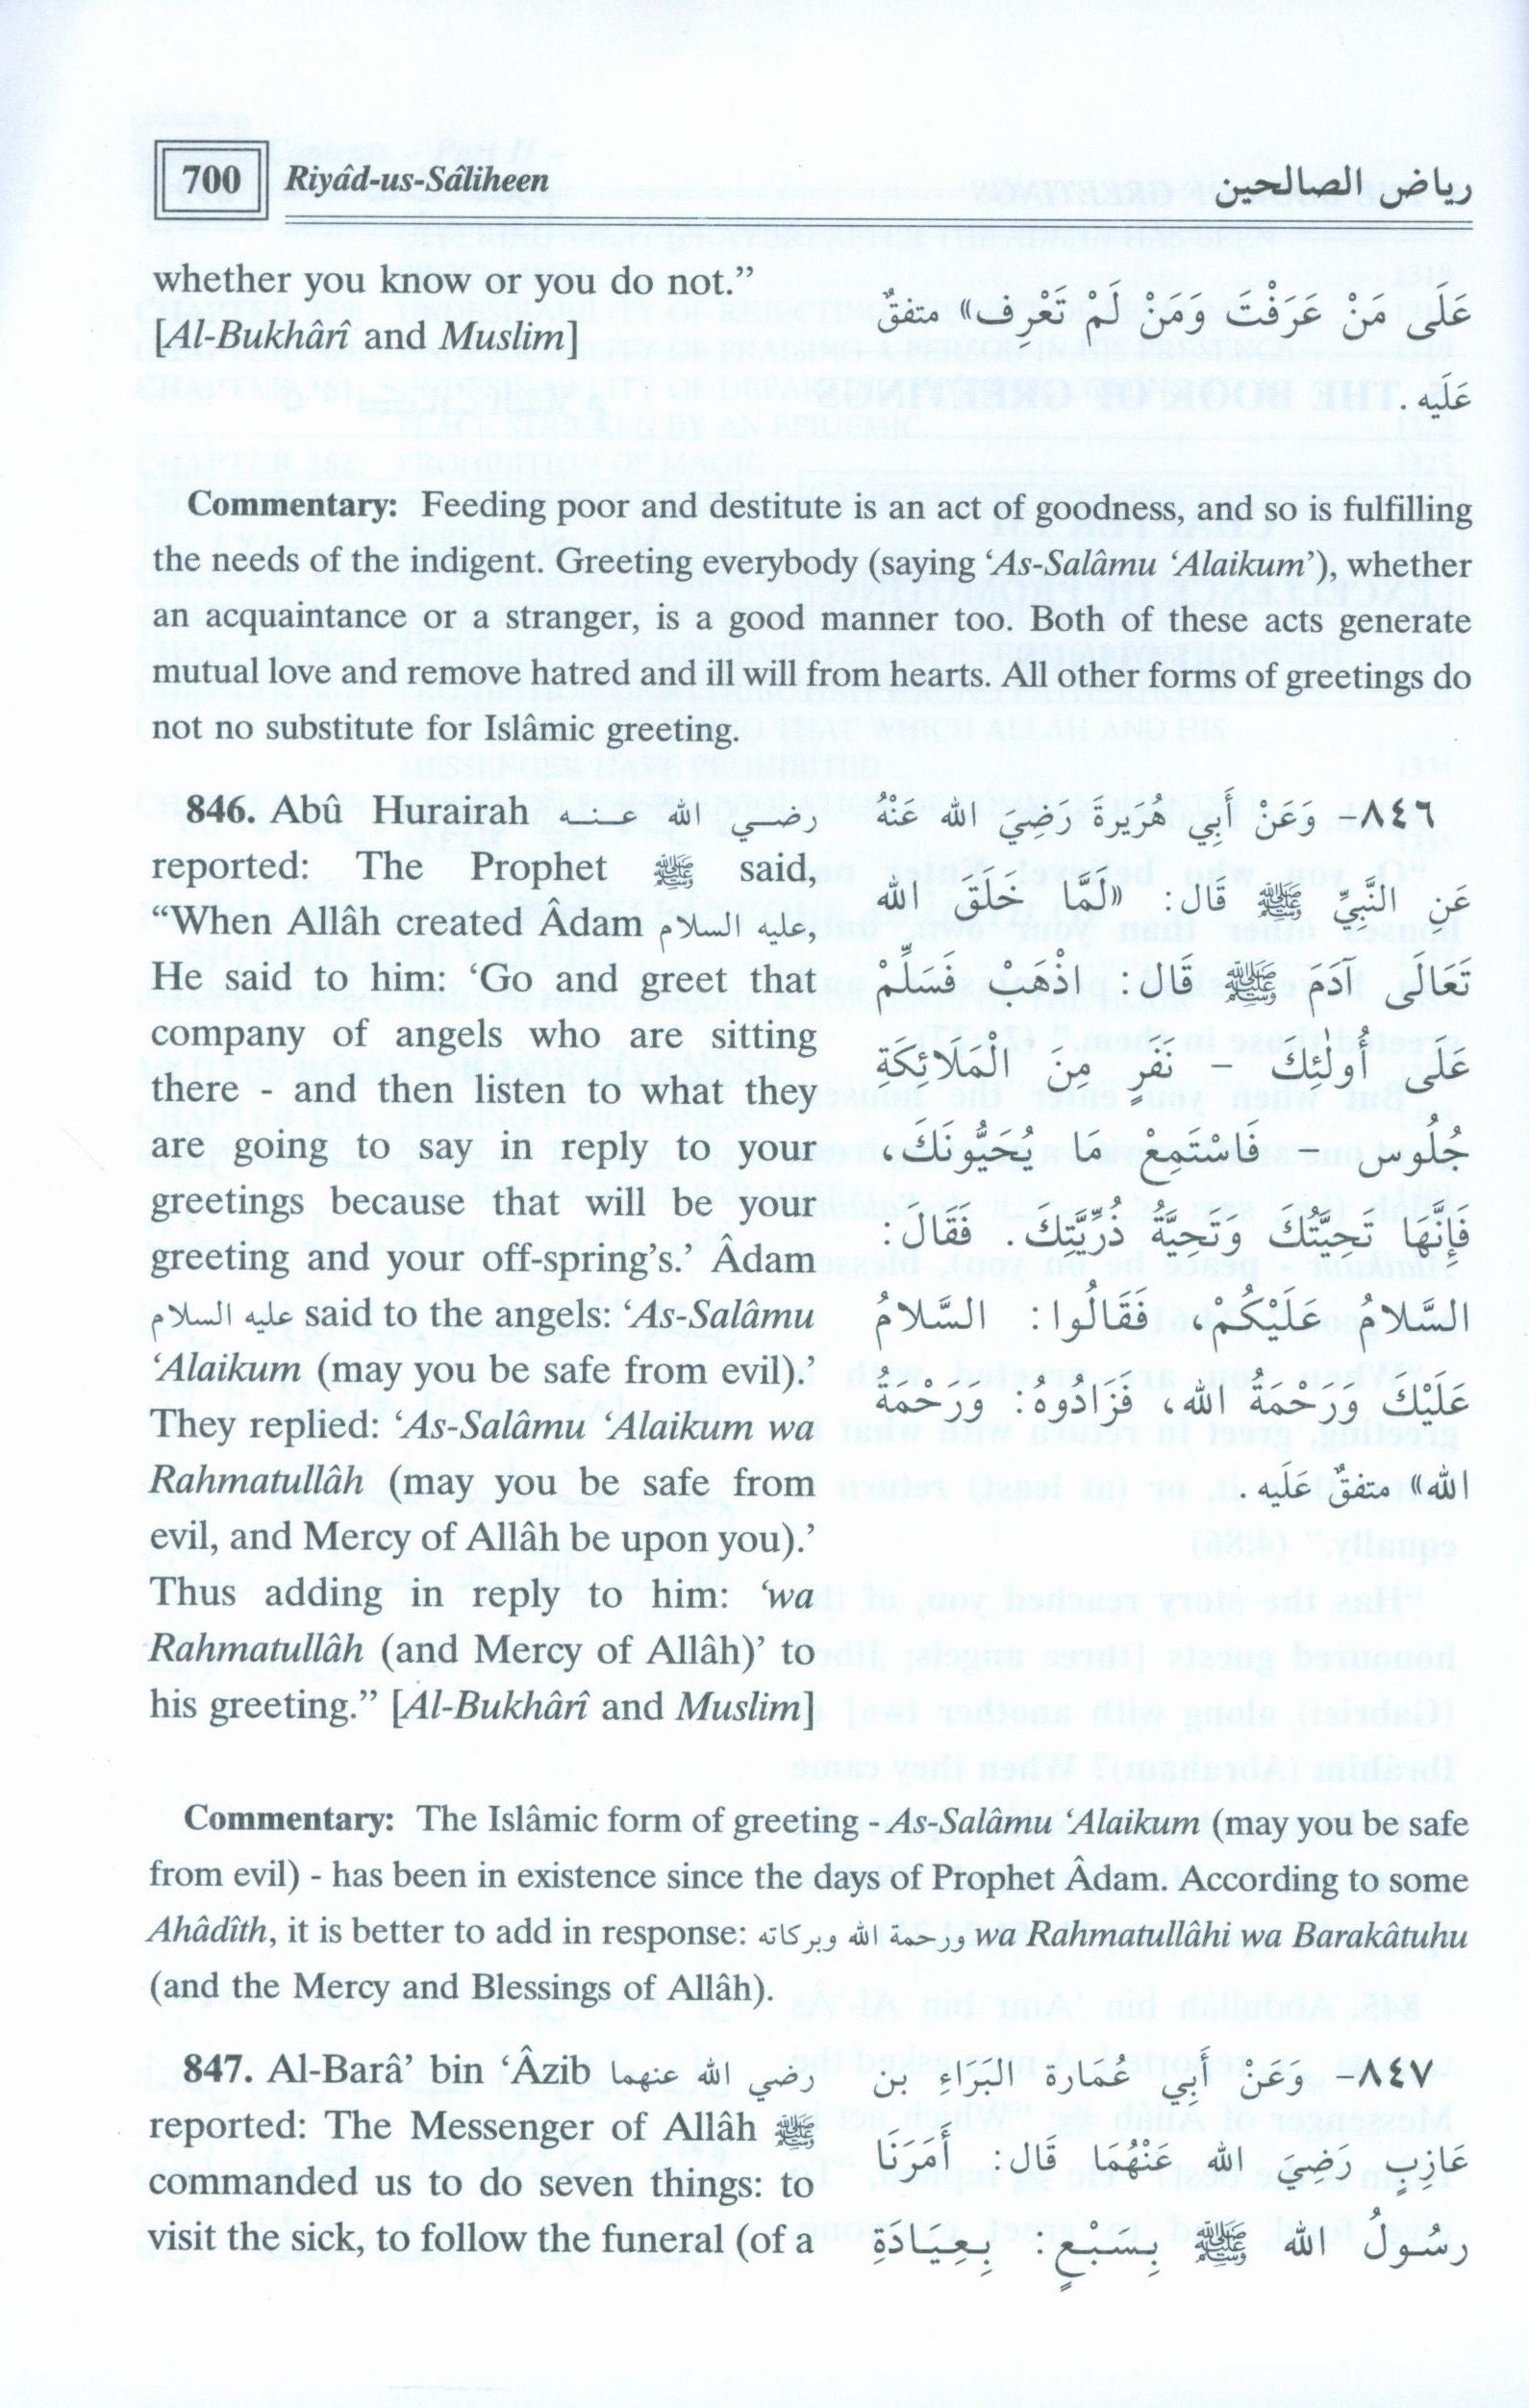 700 Riyâd-us-Sâliheen
رياض الصالحين
whether you know or you do not.”
[Al-Bukhârî and Muslim]
عَلَى مَنْ عَرَفْتَ وَمَنْ لَمْ تَعْرِفْ» متفقٌ
عَلَيه .
Commentary: Feeding poor and destitute is an act of goodness, and so is fulfilling
the needs of the indigent. Greeting everybody (saying ‘As-Salâmu ‘Alaikum’), whether
an acquaintance or a stranger, is a good manner too. Both of these acts generate
mutual love and remove hatred and ill will from hearts. All other forms of greetings do
not no substitute for Islâmic greeting.
846. Abû Hurairah رضي الله عنه
reported: The Prophet ﷺ said,
“When Allâh created Âdam عليه السلام,
He said to him: ‘Go and greet that
company of angels who are sitting
there - and then listen to what they
are going to say in reply to your
greetings because that will be your
greeting and your off-spring’s.’ Âdam
عليه السلام said to the angels: ‘As-Salâmu
‘Alaikum (may you be safe from evil).’
They replied: ‘As-Salâmu ‘Alaikum wa
Rahmatullâh (may you be safe from
evil, and Mercy of Allâh be upon you).’
Thus adding in reply to him: ‘wa
Rahmatullâh (and Mercy of Allâh)’ to
his greeting.” [Al-Bukhârî and Muslim]
٨٤٦- وَعَنْ أَبِي هُرَيرةَ رَضِيَ الله عَنْهُ
عَنِ النَّبِيِّ ﷺ قالَ: «لَمَّا خَلَقَ الله
تَعَالَى آدَمَ ﷺ قَالَ: اذْهَبْ فَسَلِّمْ
عَلَى أُولٰئِكَ - نَفَرٍ مِنَ الْمَلَائِكَةِ
جُلُوس - فَاسْتَمِعْ مَا يُحَيُّونَكَ،
فَإِنَّهَا تَحِيَّتُكَ وَتَحِيَّةُ ذُرِّيَّتِكَ. فَقَالَ:
السَّلامُ عَلَيْكُمْ، فَقَالُوا: السَّلامُ
عَلَيْكَ وَرَحْمَةُ الله، فَزَادُوهُ: وَرَحْمَةُ
الله» متفقٌ عَلَيه .
Commentary: The Islâmic form of greeting - As-Salâmu ‘Alaikum (may you be safe
from evil) - has been in existence since the days of Prophet Âdam. According to some
Ahâdîth, it is better to add in response: ورحمة الله وبركاته wa Rahmatullâhi wa Barakâtuhu
(and the Mercy and Blessings of Allâh).
847. Al-Barâ’ bin ‘Âzib رضي الله عنهما
reported: The Messenger of Allâh ﷺ
commanded us to do seven things: to
visit the sick, to follow the funeral (of a
٨٤٧- وَعَنْ أَبِي عُمَارة البَرَاءِ بن
عَازِبٍ رَضيَ الله عَنْهُمَا قَال: أَمَرَنَا
رَسُولُ الله ﷺ بِسَبْعٍ: بِعِيَادَةِ